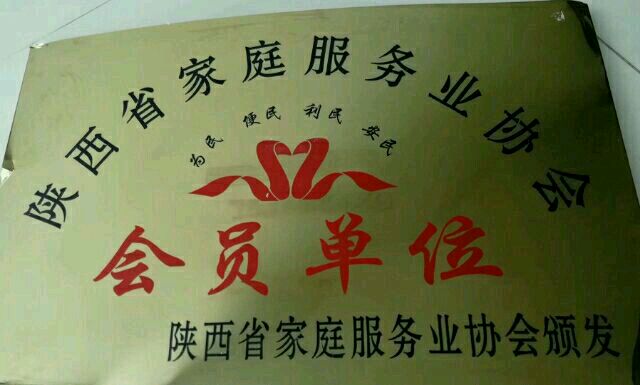 陕西省家庭服务业协会
为民 便民 利民 安民
会员单位
陕西省家庭服务业协会颁发